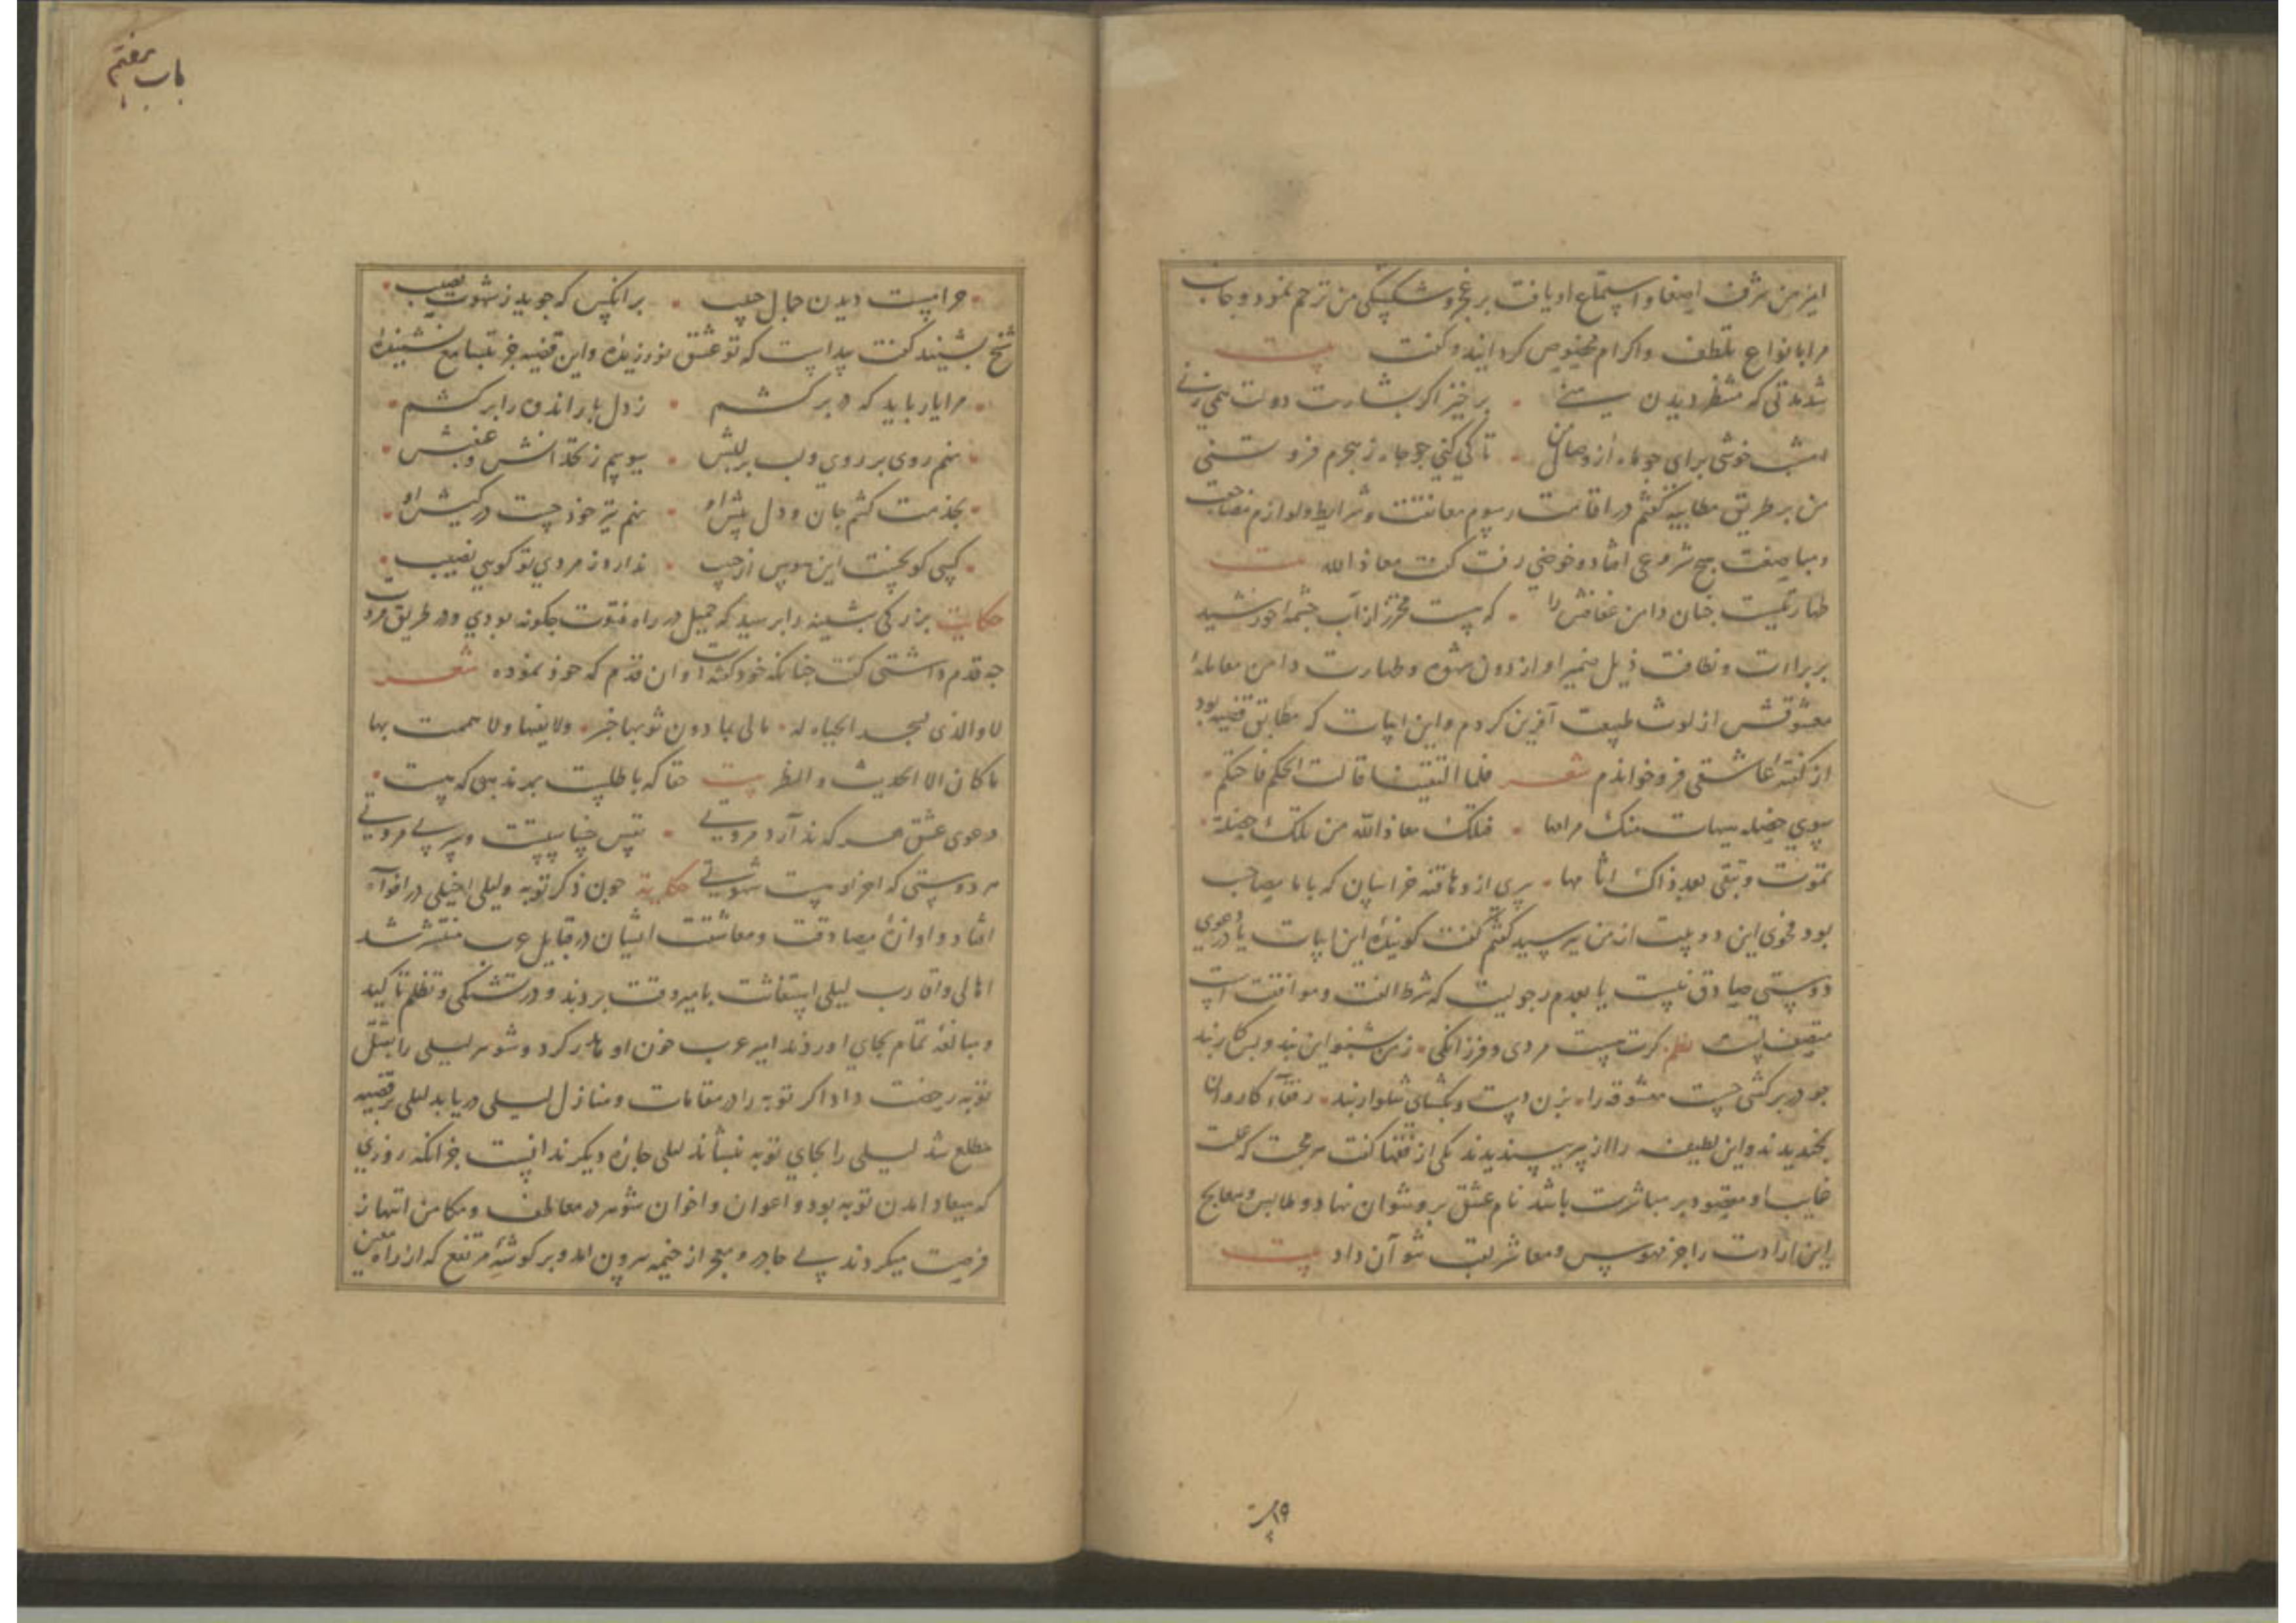 این من شرف اصغا و استماع او یافت بر عجز و شکستگی من ترحم نمود و جانب
مرا بانواع تلطف و اکرام مخصوص کردانید و کفت بیت
شد مدتی که منتظر دیدن منی برخیز اکر بشارت دولت همی زنی
امشب خوشی برای جو ماه از وصال من تا کی کنی جو جاه ز هجرم فرو تنی
من بر طریق مطایبه کفتم در اقامت رسوم معانقت و شرایط و لوازم مضاجعت
و مباضعت هیچ شروعی افتاد و خوضی رفت کفت معاذ الله بیت
طهارتیست جنان دامن عفافش را که هست محترز از آب جشمه خورشید
بر براءت و نظافت ذیل ضمیر او از درن شهوة و طهارت دامن معامله
معشوقش از لوث طبیعت آفرین کردم و این ابیات که مطابق قضیه بود
از کفته عاشقی فرو خواندم شعر فلما التقینا قالت الحکم فاحتکم
سوی خصلة هیهات منک مرامها فقلت معاذ الله من تلک خصلة
تموت و تبقی بعد ذاک اثامها پیری از دهاقنه خراسان که با ما مصاحب
بود فحوی این دو بیت از من بپرسید کفتم کفت کوینده این ابیات یا در دعوی
دوستی صادق نیست یا بعدم رجولیت که شرط الفت و موافقت است
متصفست نظم کرت هست مردی و فرزانکی ز من بشنو این پند و بس کار بند
جو در بر کشی جست معشوقه را بزن دست و بکشای شلوار بند رفقاء کاروان
بخندیدند و این لطیفه را از پیر بپسندیدند یکی از فقها کفت هر محبت که علت
غایب او مقصود بر مباشرت باشد نام عشق برو نتوان نهاد و طالب و معالج
این ارادت را جز بهوس و معاشرت نتوان داد بیت
۱۹
باب هفتم
حرامیست دیدن جمال حبیب بر انکس که جوید ز شهوت نصیب
شیخ بشنید کفت پیداست که تو عشق نورزیده و این قضیه جز بتسامع نشنیده
مرا یار باید که در بر کشم ز دل بار اندوه را بر کشم
نهم روی بر روی و لب بر لبش ببویم زنخدانش و غبغبش
بخدمت کشم جان و دل پیش او نهم تیر خود جست در کیش او
کسی کو بجست این هوس از حبیب ندارد ز مردی تو کویی نصیب
حکایت بزرکی بثینه را پرسید که جمیل در راه فتوت جکونه بودی و در طریق مروت
جه قدم داشتی کفت جنانکه خود کفته است و ان قدم که خود نموده شعر
لا والذی تسجد الجباه له مالی بما دون ثوبها خبر ولا بفیها ولا هممت بها
ما کان الا الحدیث والنظر بیت حقا که باطلست بهر مذهبی که هست
دعوی عشق هر که ندارد مروتی
هر دوستی که اخر او هست شهوتی حکایة جون ذکر توبه و لیلی اخیلی در افواه
افتاد و اوازه مصادقت و معاشقت ایشان در قبایل عرب منتشر شد
اهالی و اقارب لیلی استغاثت بامیر وقت بردند و در تشکی و تظلم تاکید
و مبالغه تمام بجای اوردند امیر عرب خون او هدر کرد و شوهر لیلی را بقتل
توبه رخصت داد اکر توبه را در مقامات و منازل لیلی دریابد لیلی بر قضیه
مطلع شد لیلی را بجای توبه بنشاند لیلی جاره دیکر ندانست جز انکه روزی
که میعاد امدن توبه بود و اعوان و اخوان شوهر در معاطف و مکامن انتهاز
فرصت میکردند بی جادر و معجر از خیمه بیرون امد و بر کوشه مرتفع که از راه معین